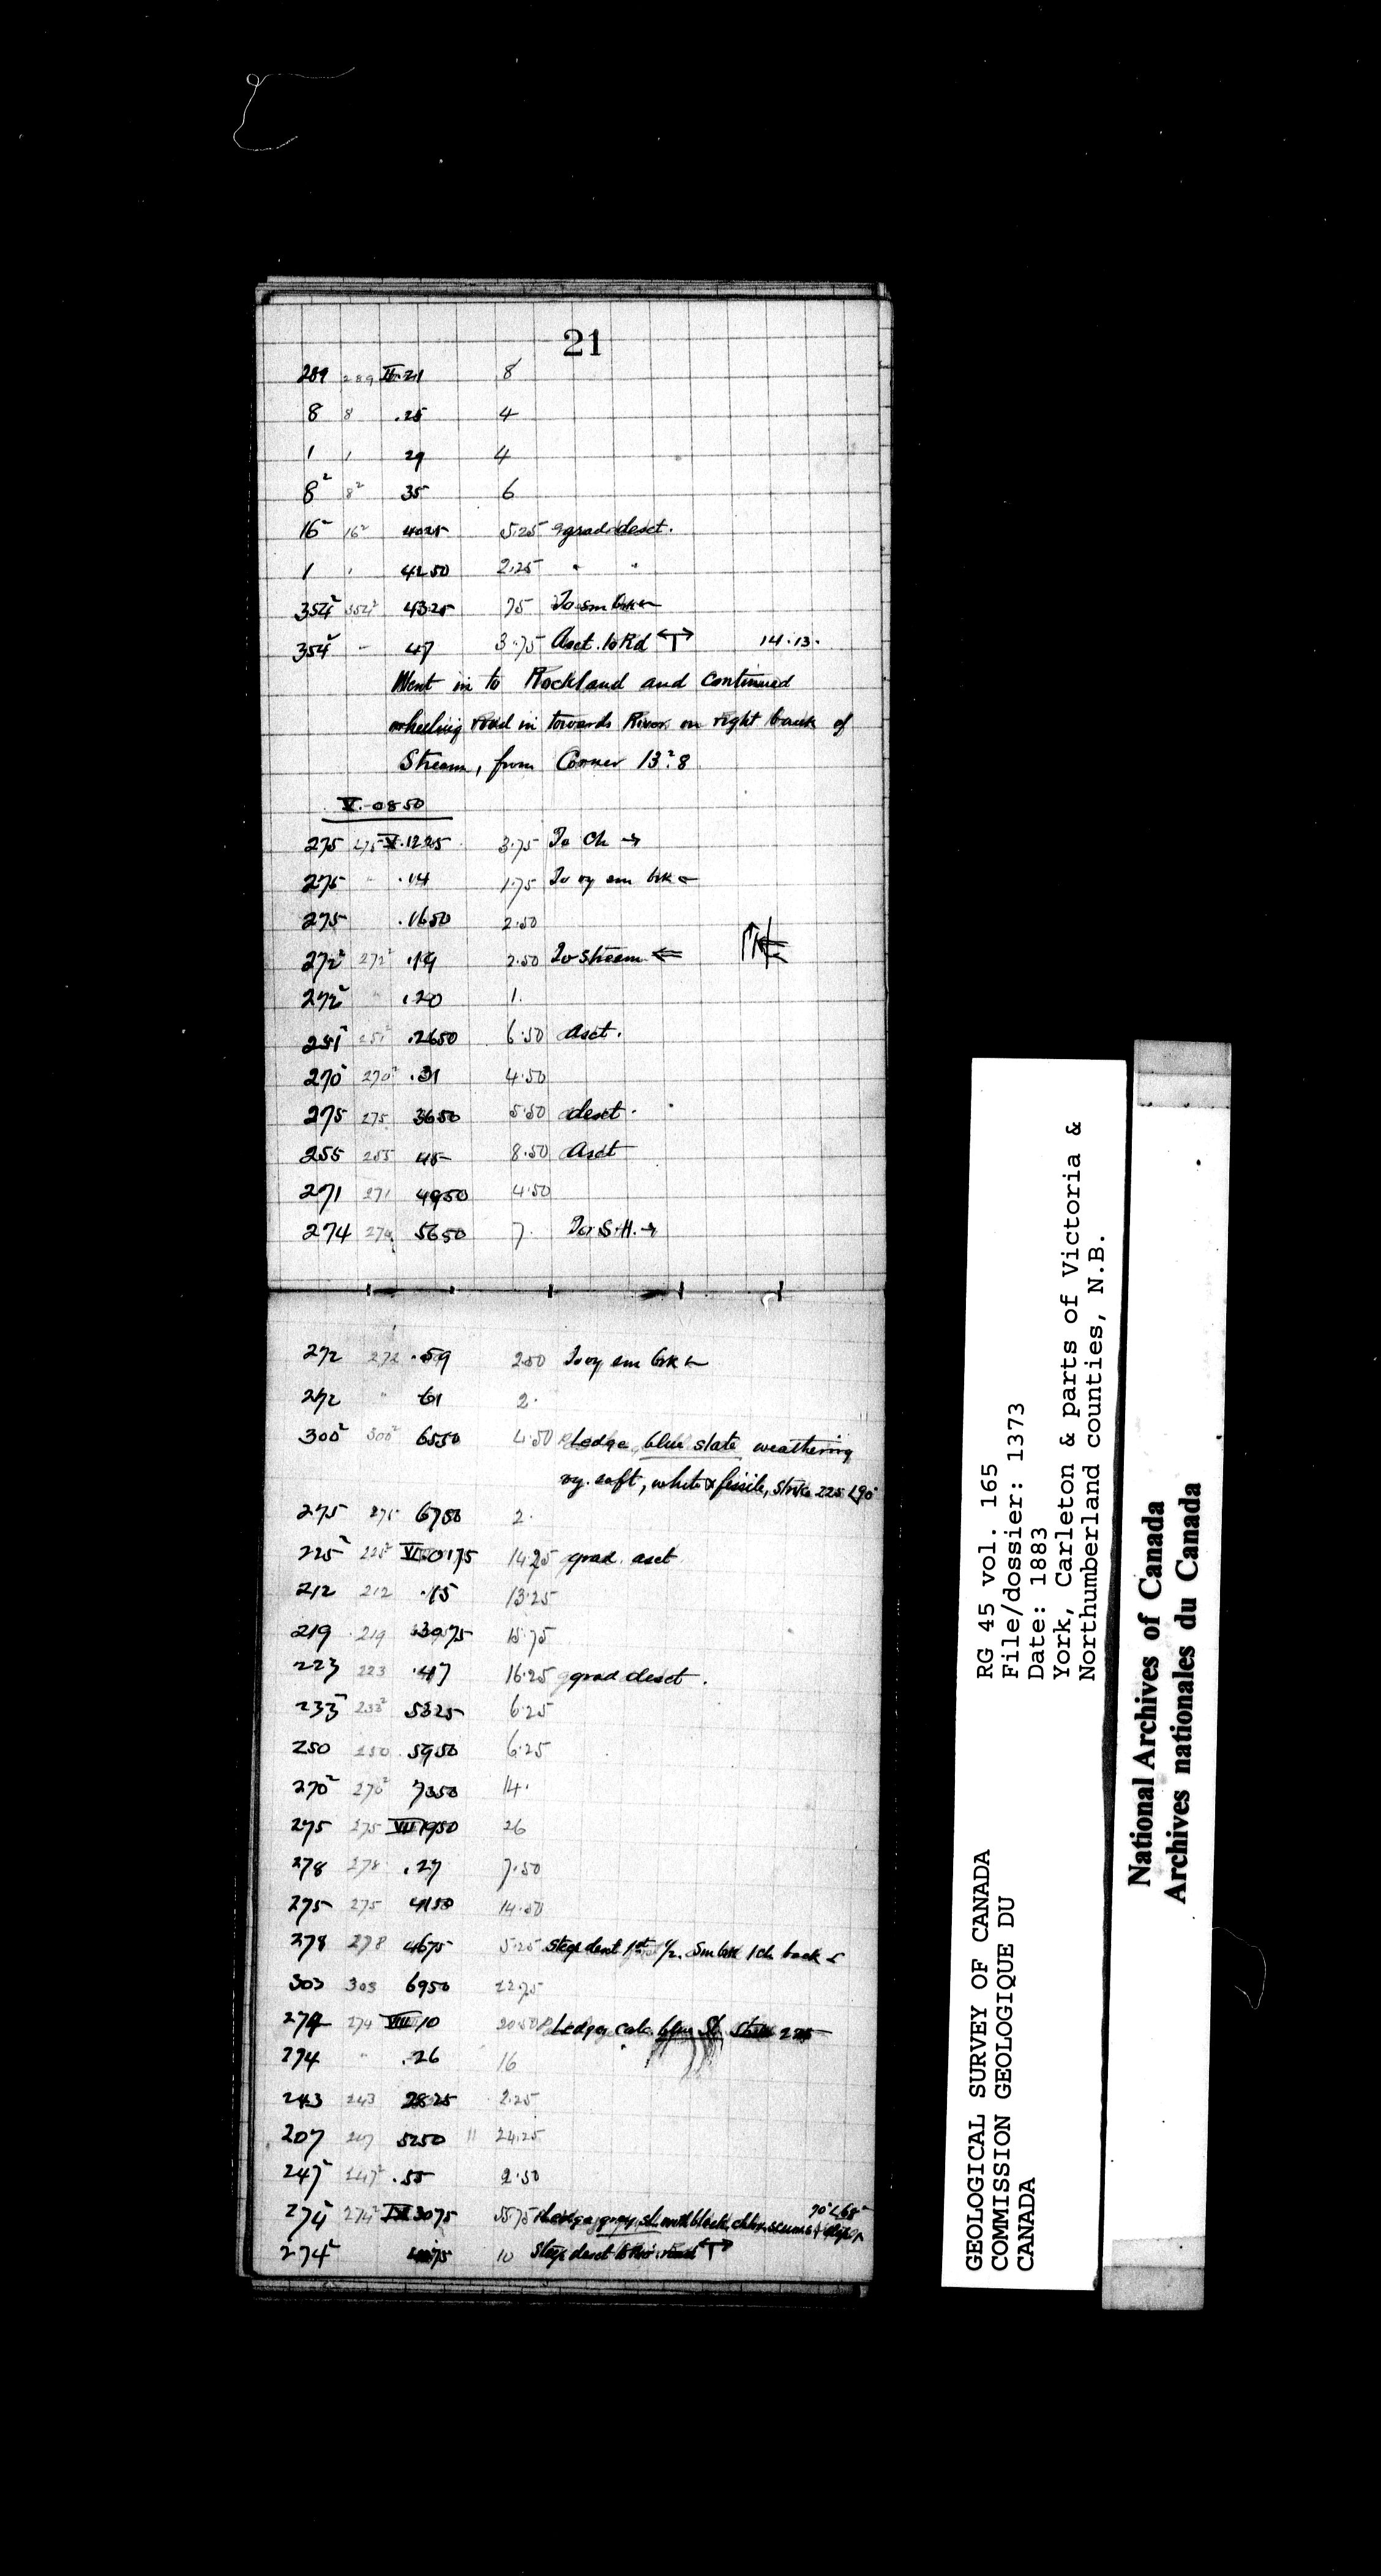 21
289 289 II.21 8
8 8 .25 4
1 1 29 4
8² 8² 35 6
16² 16² 4025 5.25 grad desct.
1 1 4250 2.25 " "
354² 354² 4325 75 To sm brk ←
354² " 47 3.75 Asct. to Rd ←T→ 14.13.
Went in to Rockland and continued
wheeling road in towards River on right bank of
Stream, from Corner 13².8
V.0850
275 275 V.1225 3.75 To Ch →
275 " .14 1.75 To vy sm brk ←
275 .1650 2.50
272² 272² .19 2.50 To stream ⇐
272² " .20 1.
251² 251² .2650 6.50 Asct.
270² 270² .31 4.50
275 275 3650 5.50 desct.
255 255 45 8.50 Asct
271 271 4950 4.50
274 274 5650 7. To S.H. →
272 272 .59 2.50 To vy sm brk ←
272 " 61 2.
300² 300² 6550 4.50 Ledge blue slate weathering
vy. soft, white & fissile, Strike 225 <90°
275 275 6750 2.
225² 225² VI.0175 14.25 grad. asct
212 212 .15 13.25
219 219 3075 15.75
223 223 .47 16.25 grad desct.
233² 233² 5325 6.25
250 250 5950 6.25
270² 270² 7350 14.
275 275 VII 1950 26
278 278 .27 7.50
275 275 4150 14.50
278 278 4675 5.25 Steep desnt 1st ½. Sm brk 1 ch back ←
303 303 6950 22.75
274 274 VIII 10 20.50 Ledges calc. blue Sl. Strike 225
274 " .26 16
243 243 2825 2.25
207 207 5250 11 24.25
247² 247² .55 2.50
274² 274² IX 3075 55.75 Ledge gray sl. with black chlor. seams & dip 70° <68°
274² 4075 10 Steep desct to Riv. road ←T→
GEOLOGICAL SURVEY OF CANADA
COMMISSION GEOLOGIQUE DU
CANADA
RG 45 vol. 165
File/dossier: 1373
Date: 1883
York, Carleton & parts of Victoria &
Northumberland counties, N.B.
National Archives of Canada
Archives nationales du Canada